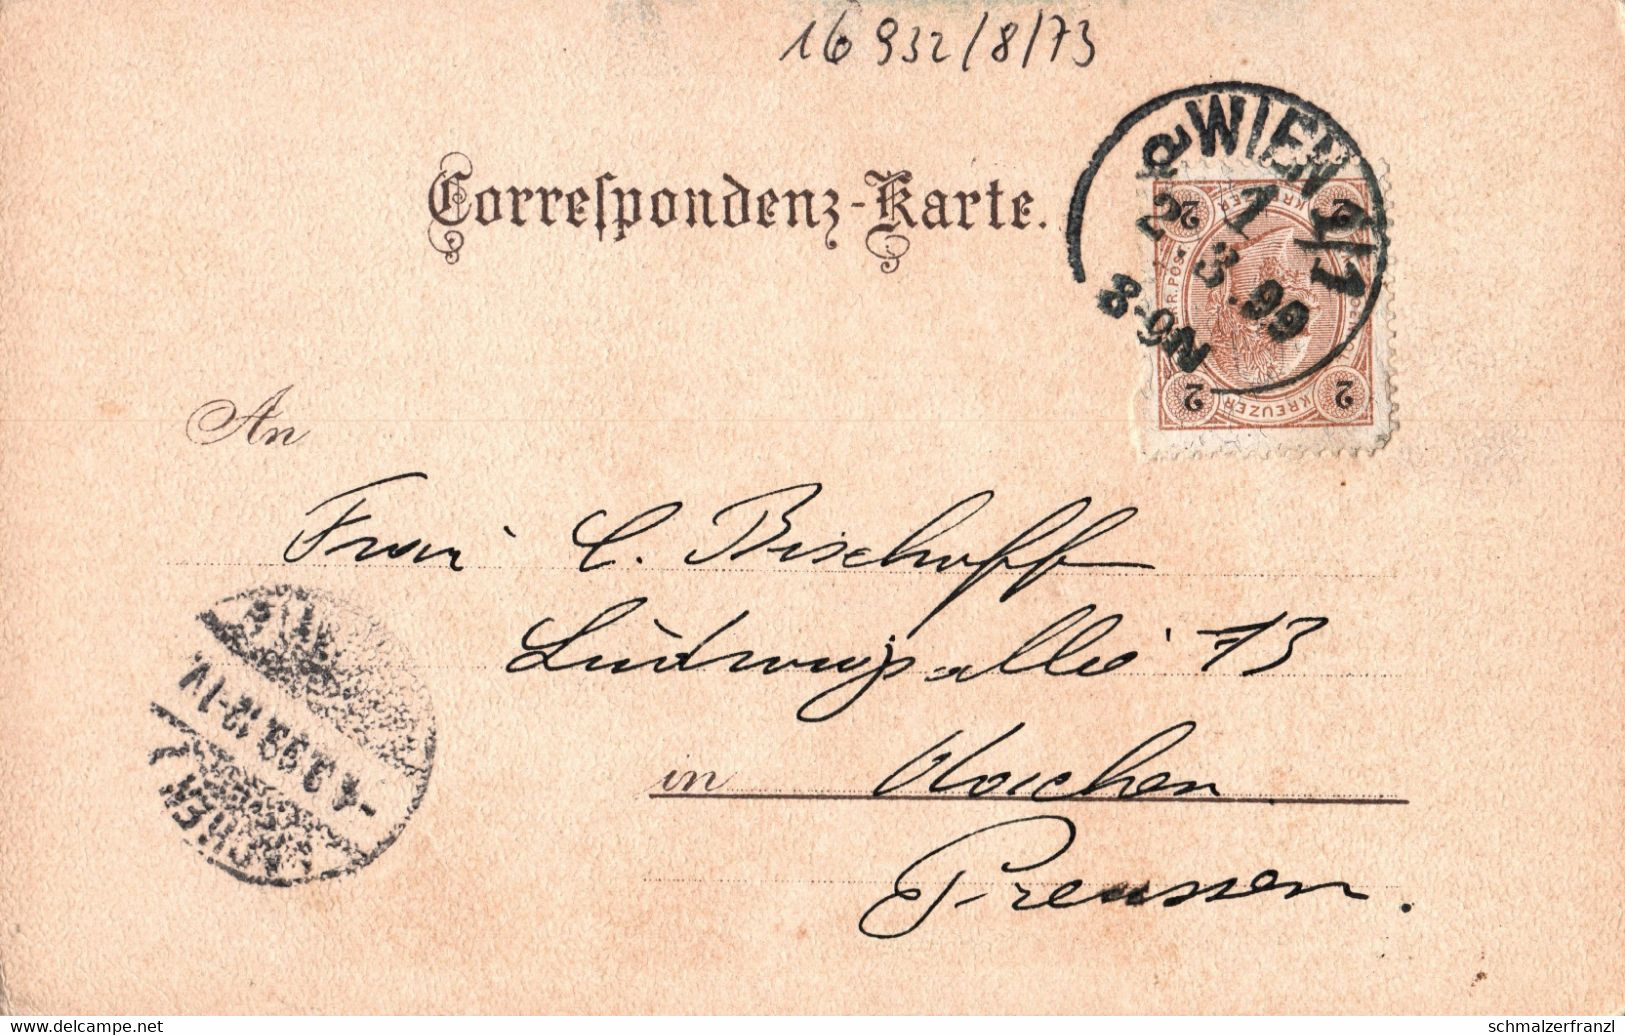 16 932/8/73
Correspondenz-Karte.
WIEN 9/1
2.3.99
8-9N
2 KREUZER 2
2 KREUZER 2
An
Frau C. Bischoff
Ludwigsallee 73
in Aachen
Preussen.
3.99.12-1V.
AACHEN
www.delcampe.net
schmalzerfranzl